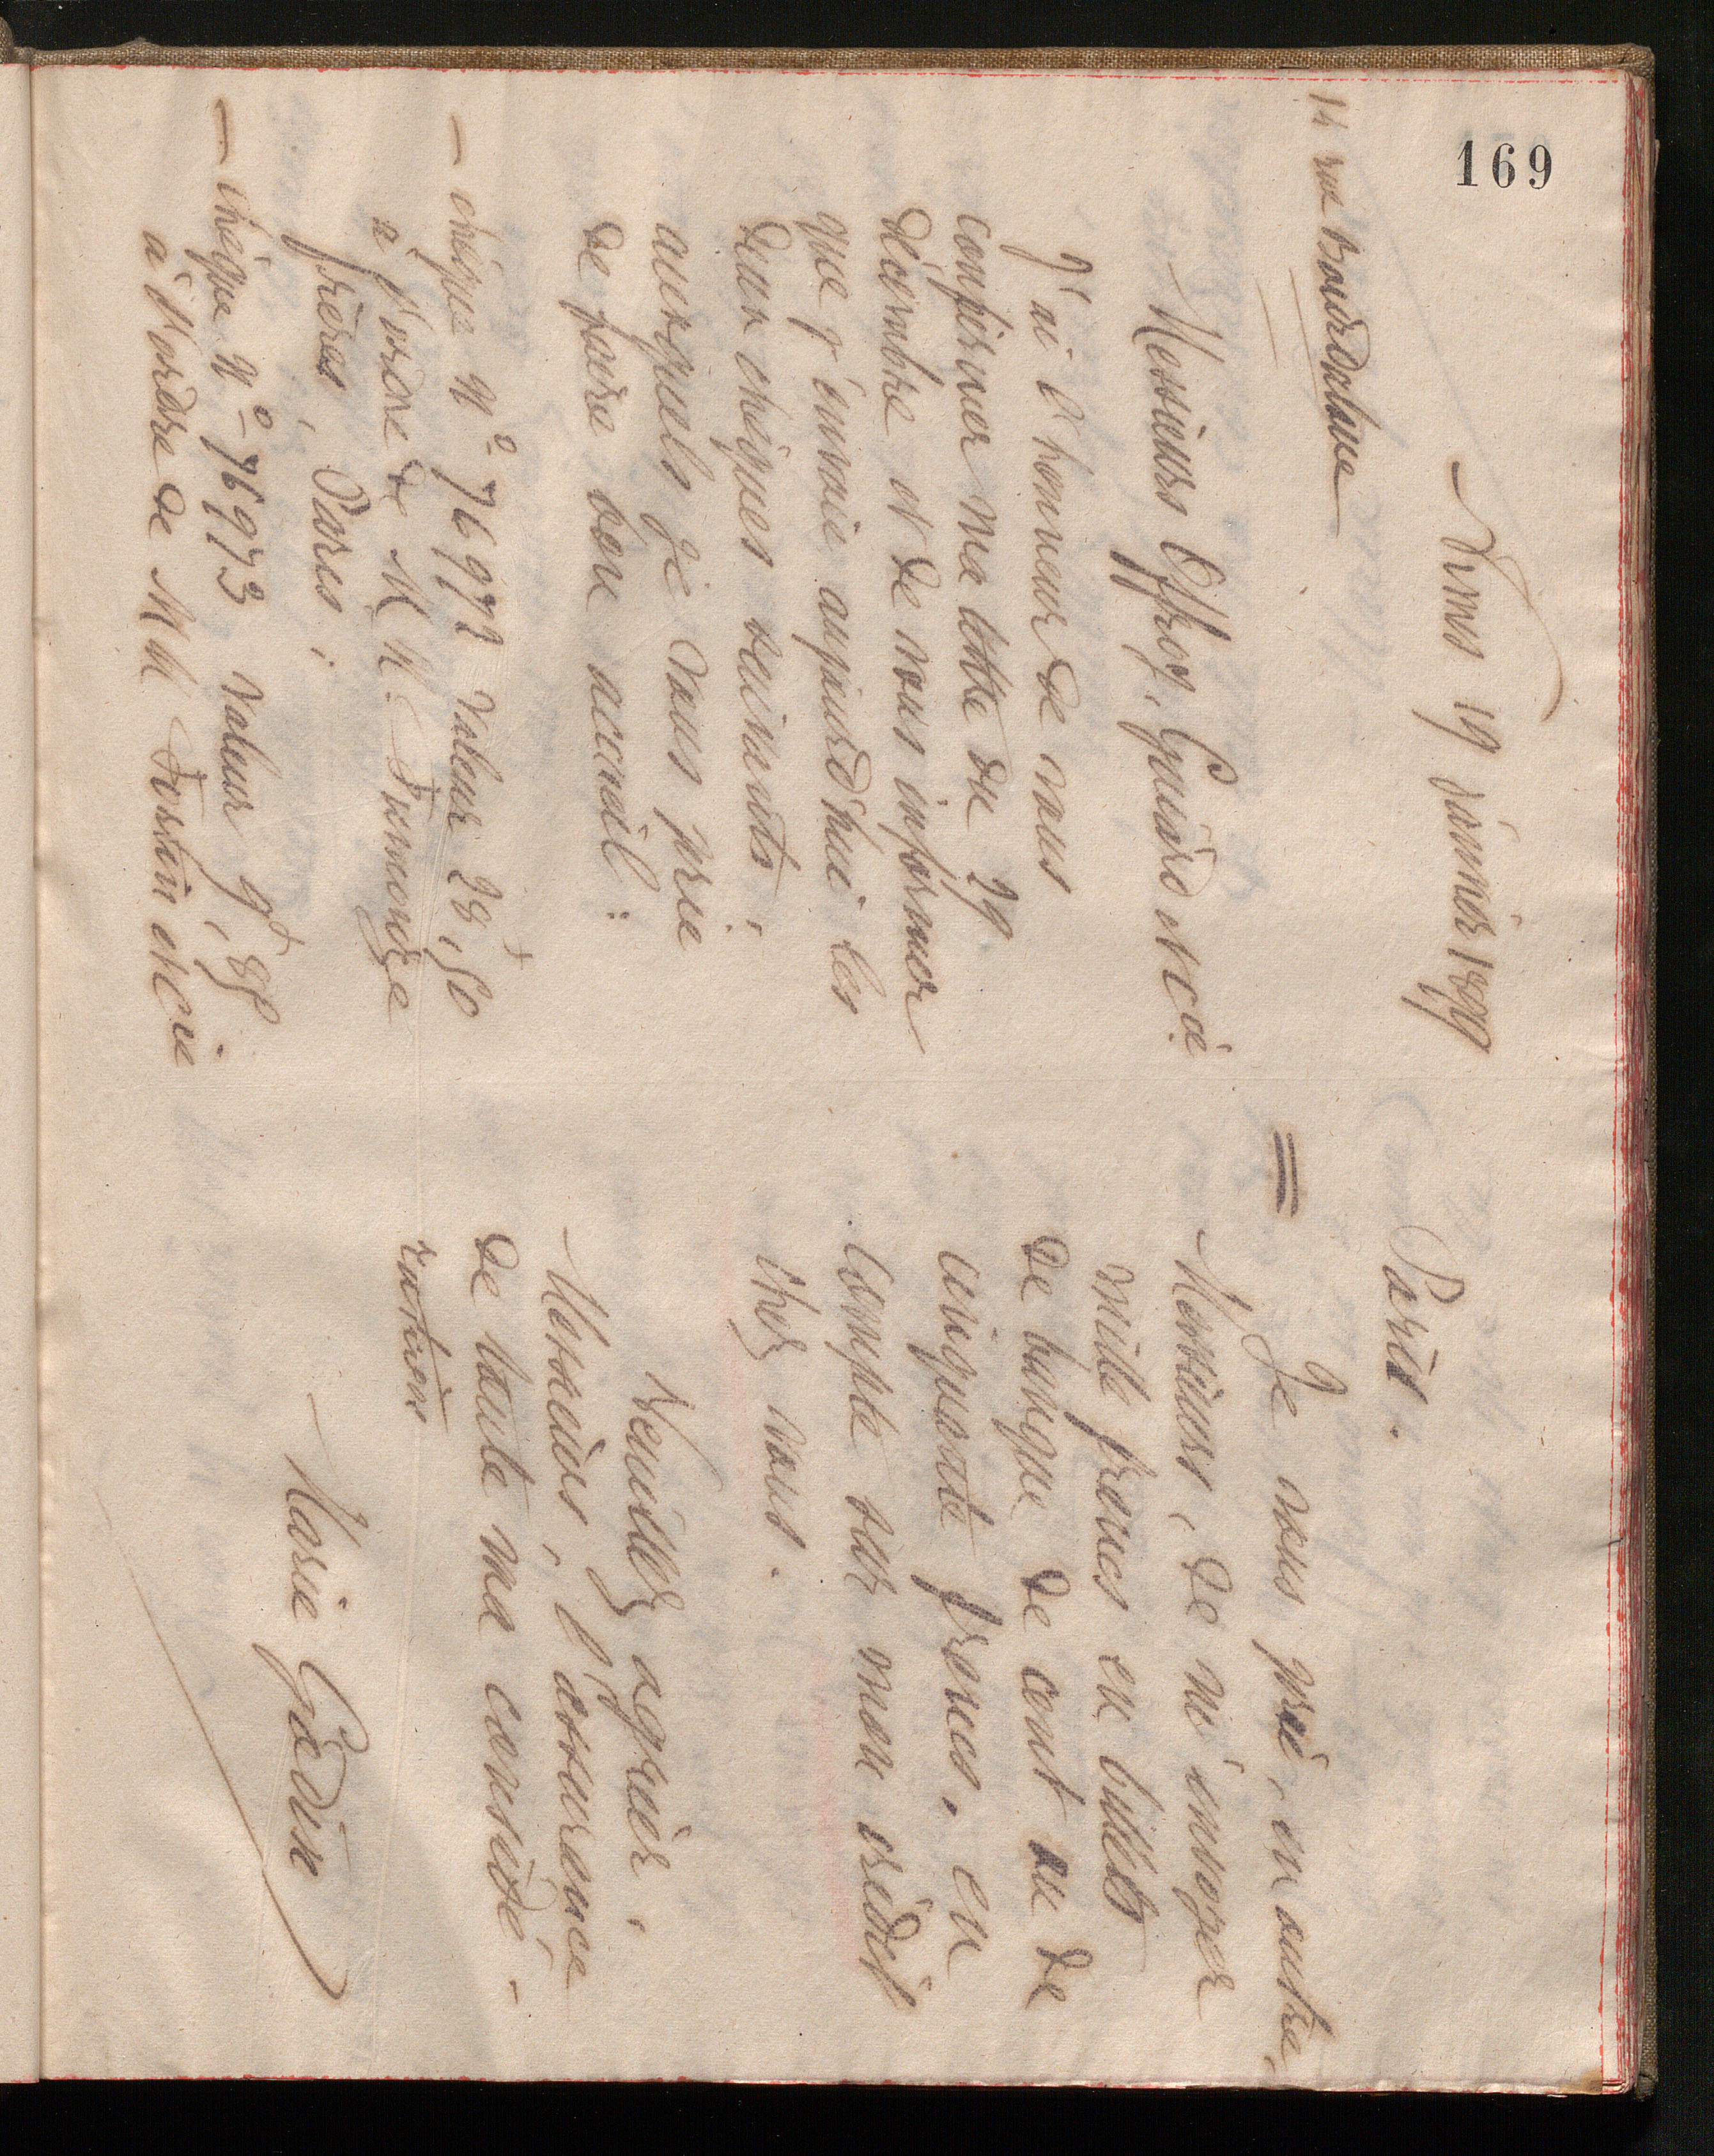 169
Nîmes 19 janvier 1899
14 rue Bourdaloue
Messieurs Offroy, Guiard et Cie
J'ai l'honneur de vous
confirmer ma lettre du 29
décembre et de vous informer
que j'envoie aujourd'hui les
deux chèques suivants,
auxquels je vous prie
de faire bon accueil :
— chèque No 76972 valeur 28f,50
à l'ordre de M M. Fumouze
frères, Paris ;
— chèque No 76973 valeur 9f,85
à l'ordre de M M Fortin et Cie
Paris.
Je vous prie, en outre,
Messieurs, de m'envoyer
mille francs en billets
de banque de cent ou de
cinquante francs, en
compte sur mon crédit
chez vous.
Veuillez agréer,
Messieurs, l'assurance
de toute ma considé-
ration
Marie Godin